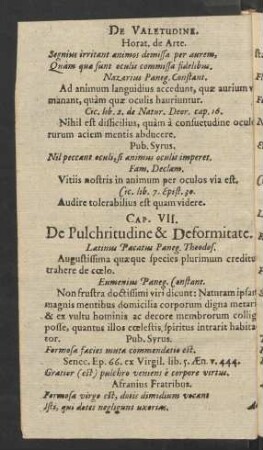 DE VALETUDINE.
Horat. de Arte.
Segnius irritant animos demissa per aurem,
Quàm quæ sunt oculis commissa fidelibus.
Nazarius Paneg. Constant.
Ad animum languidius accedunt, quæ aurium
manant, quàm quæ oculis hauriuntur.
Cic. lib. 2. de Natur. Deor. cap. 16.
Nihil est difficilius, quàm à consuetudine
rurum aciem mentis abducere.
Pub. Syrus.
Nil peccant oculi, si animus oculis imperet.
Fam. Declam.
Vitiis nostris in animum per oculos via est.
Cic. lib. 7. Epist. 30.
Audire tolerabilius est quam videre.
CAP. VII.
De Pulchritudine & Deformitate.
Latinus Pacatus Paneg. Theodos.
Augustissima quæque species plurimum creditu
trahere de cœlo.
Eumenius Paneg. Constant.
Non frustra doctissimi viri dicunt; Naturam ipsam
magnis mentibus domicilia corporum digna metari
& ex vultu hominis ac decore membrorum colligi
posse, quantus illos cœlestis, spiritus intrarit habita
tor. Pub. Syrus.
Formosa facies muta commendatio est.
Senec. Ep. 66. ex Virgil. lib. 5. Æn. v. 444.
Gratior (est) pulchro veniens è corpore virtus.
Afranius Fratribus.
Formosa virgo est, dotis dimidium vocant
Isti, qui dotes negligunt uxorias.